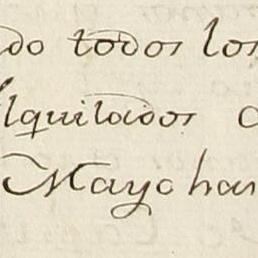 do todos los
lquilados
Mayo has